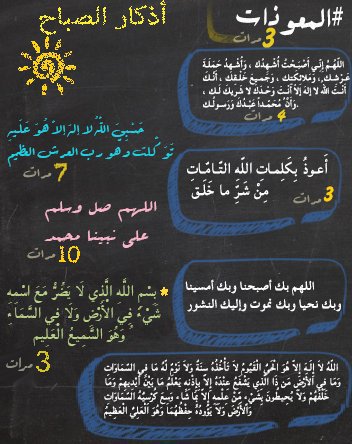 أذكار الصباح
#المعوذات
3 مرات
اللَّهُمَّ إِنِّي أَصْبَحْتُ أُشْهِدُكَ ، وَأُشْهِدُ حَمَلَةَ
عَرْشِكَ ، وَمَلَائِكَتِكَ ، وَجَمِيعَ خَلْقِكَ ، أَنَّكَ
أَنْتَ اللَّهُ لَا إِلَهَ إِلَّا أَنْتَ وَحْدَكَ لَا شَرِيكَ لَكَ ،
وَأَنَّ مُحَمَّداً عَبْدُكَ وَرَسُولُكَ.
4 مرات
حَسْبِيَ اللَّهُ لا إله إلا هُوَ عَلَيْهِ
تَوَكَّلْتُ وَهُوَ رب العرش العظيم
7 مرات
أَعوذُ بِكَلِماتِ اللّهِ التّامّاتِ
مِنْ شَرِّ ما خَلَقَ
3 مرات
اللهم صل وسلم
على نبينا محمد
10 مرات
اللهم بك أصبحنا وبك أمسينا
وبك نحيا وبك نموت وإليك النشور
* بِسْمِ اللَّهِ الَّذِي لَا يَضُرُّ مَعَ اسْمِهِ
شَيْءٌ فِي الْأَرْضِ وَلَا فِي السَّمَاءِ
وَهُوَ السَّمِيعُ الْعَلِيم
3 مرات
اللَّهُ لَا إِلَهَ إِلَّا هُوَ الْحَيُّ الْقَيُّومُ لَا تَأْخُذُهُ سِنَةٌ وَلَا نَوْمٌ لَهُ مَا فِي السَّمَاوَاتِ
وَمَا فِي الْأَرْضِ مَن ذَا الَّذِي يَشْفَعُ عِنْدَهُ إِلَّا بِإِذْنِهِ يَعْلَمُ مَا بَيْنَ أَيْدِيهِمْ وَمَا
خَلْفَهُمْ وَلَا يُحِيطُونَ بِشَيْءٍ مِّنْ عِلْمِهِ إِلَّا بِمَا شَاءَ وَسِعَ كُرْسِيُّهُ السَّمَاوَاتِ
وَالْأَرْضَ وَلَا يَؤُودُهُ حِفْظُهُمَا وَهُوَ الْعَلِيُّ الْعَظِيمُ